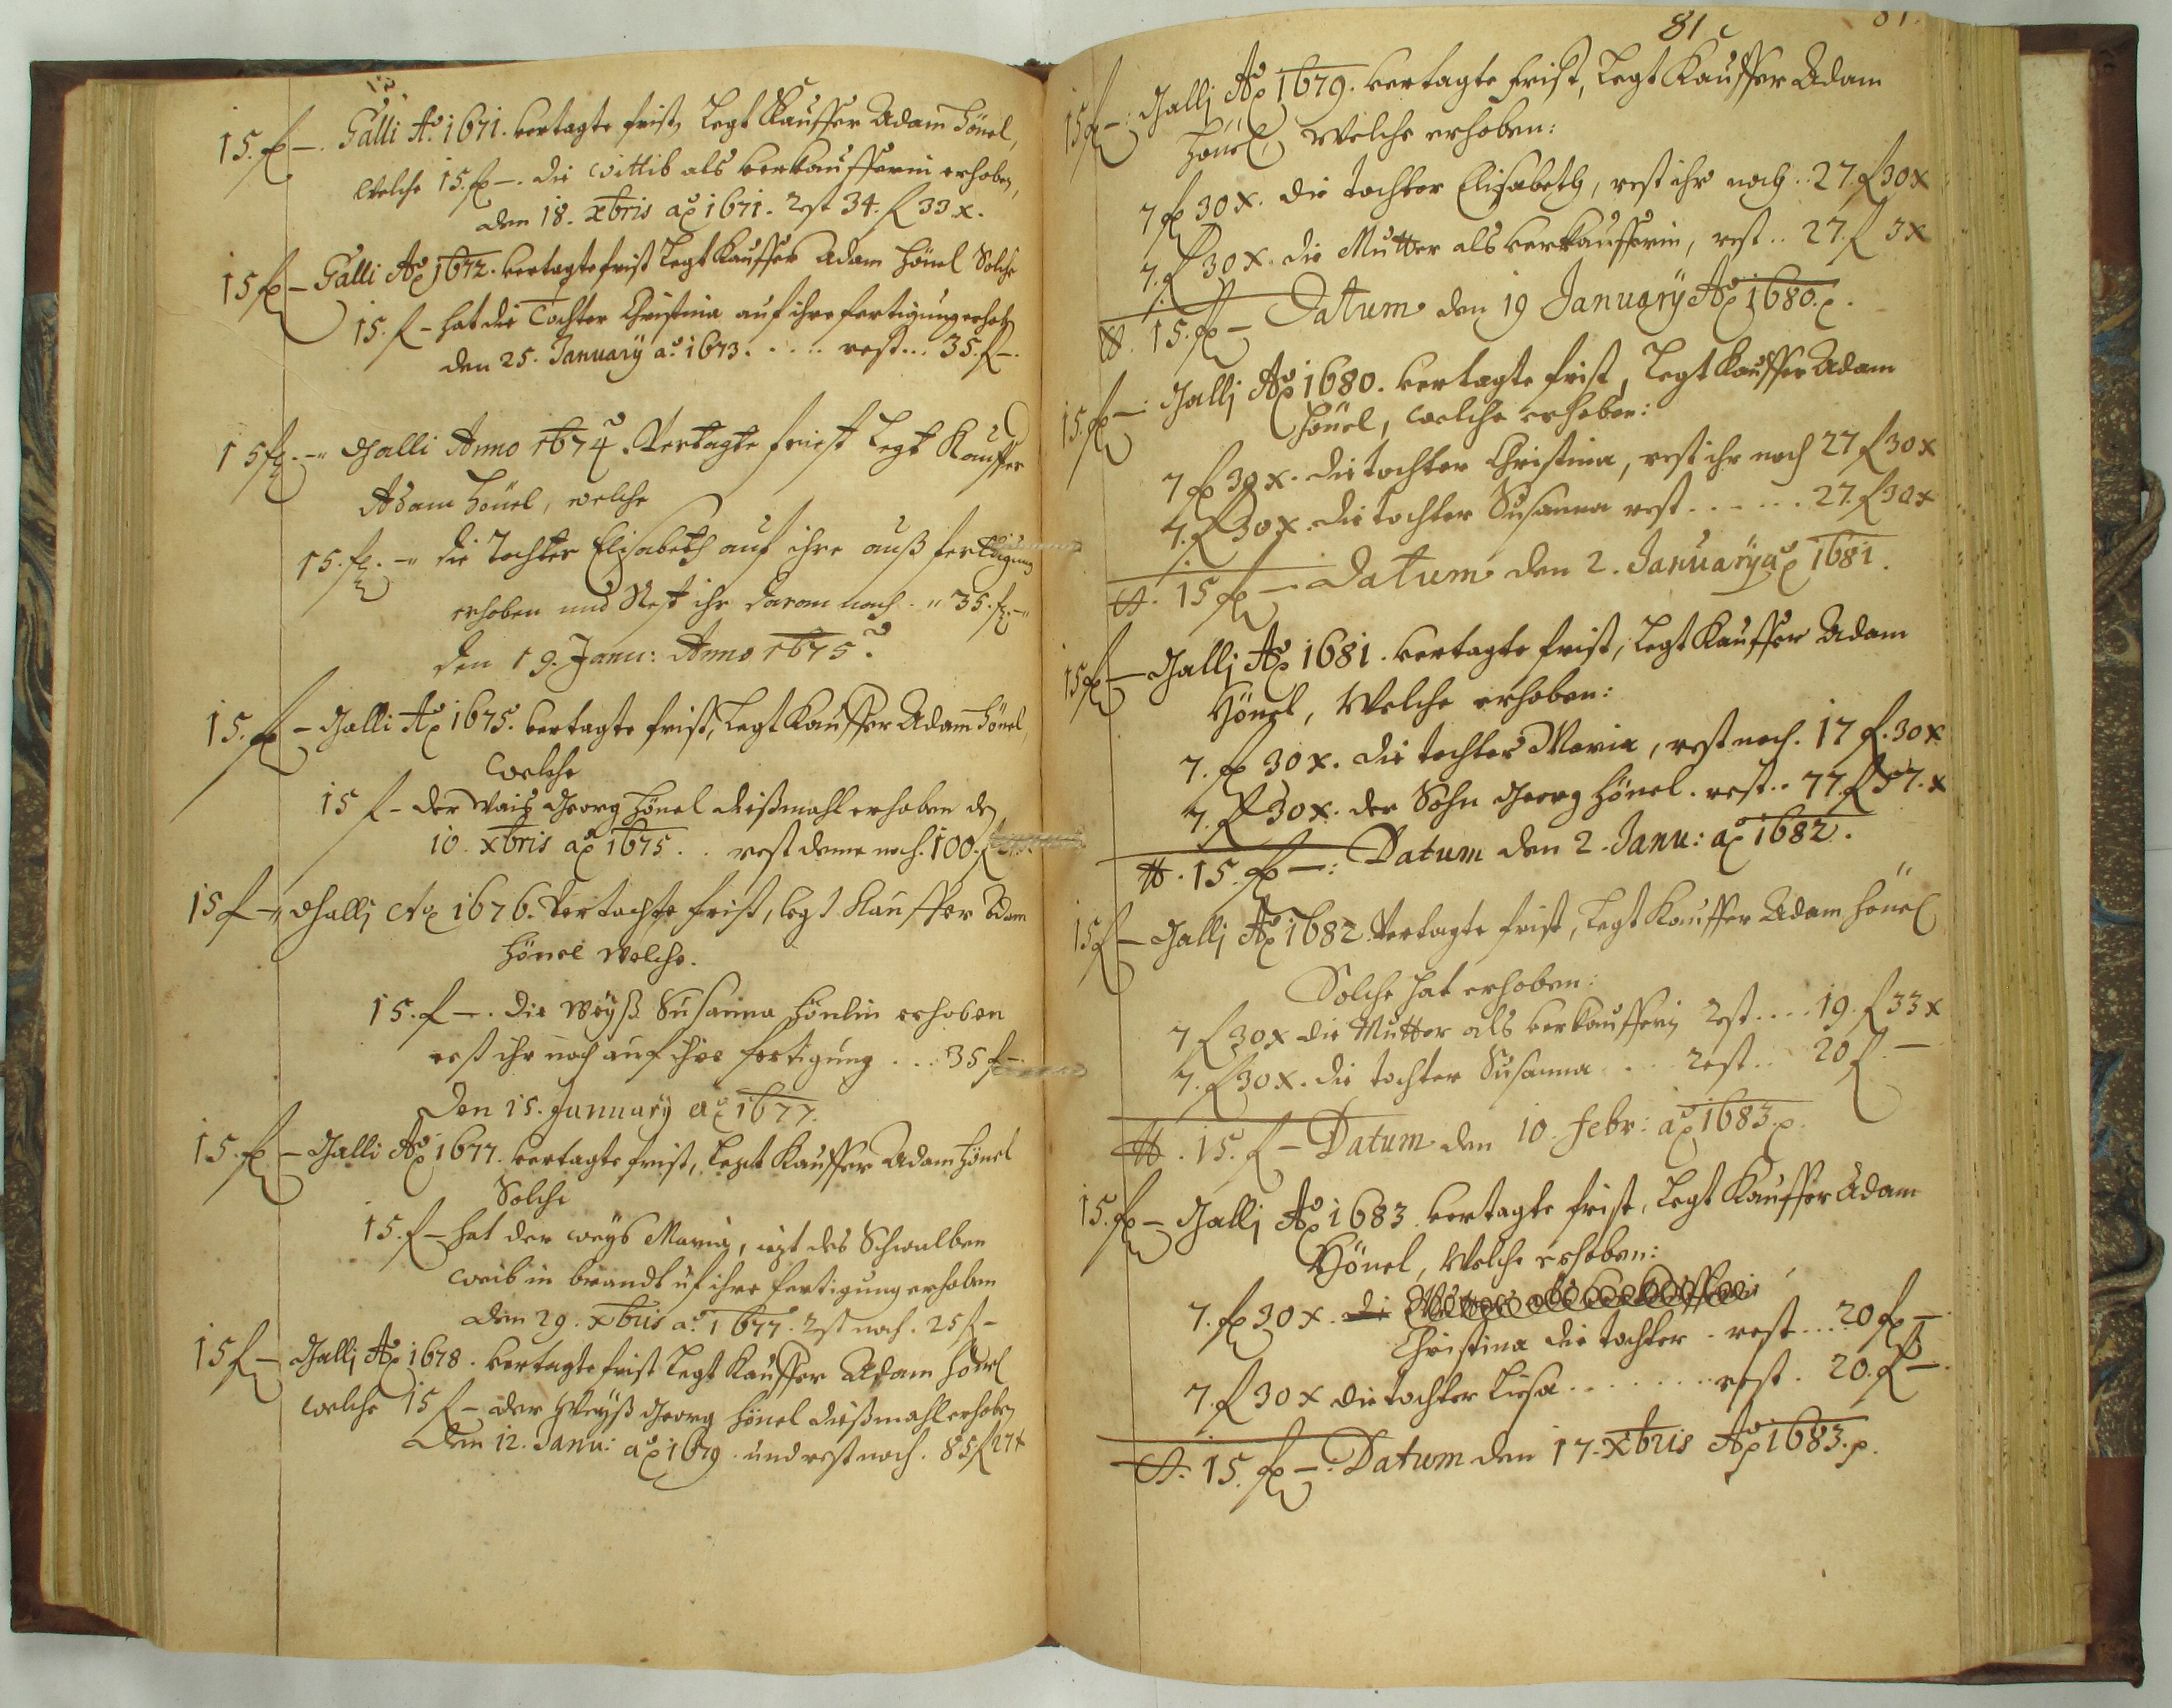 15. f –. Galli Ao. 1671. vertagte frist, Legt Kauffer Adam Hönel,
Welche 15. f –. die Wittib als verkaufferin erhoben,
den 18. xbris ao 1671. Rest 34. f 33. x.
15 f – Galli Ao 1672. vertagte frist Legt Kauffer Adam Hönel Solche
15. f – hat die Tochter Christina auf ihre fertigung erhoben
den 25. January ao. 1673. . . . . . rest . . . 35. f –.
15 f. –" Galli Anno 1674. Vertagte friest Legt Kauffer
Adam Hönel, welche
15. f. –" die Tochter Elisabeth auf ihre auß fertigung
erhoben und Rest ihr daran noch . " 35. f. –"
den 19. Janu: Anno 1675.
15. f – Galli Ao 1675. vertagte frist, Legt Kauffer Adam Hönel,
Welche
15 f – der Georg Hönel dießmahl erhoben den
10. xbris ao 1675. . . rest deme noch. 100. f
15 f –" Galli Ao 1676. Vertachte frist, legt Kauffer Adam
Hönel Welche.
15. f –. die Weyß Susanna Hönlin erhoben
rest ihr noch auf ihre fertigung . . . 35 f –
Den 15. January ao 1677.
15. f – Galli Ao 1677. vertagte frist, Legt Kauffer Adam Hönel
Solche
15. f – hat der weyß Maria, ietzt des Schwalben
Weib in brandt uf ihre fertigung erhoben
den 29. xbris ao. 1677. Rest noch. 25 f –
15 f – Galli Ao 1678. vertagte frist Legt Kauffer Adam Hönel
Welche 15 f – der Weyß Georg Hönel dießmahl erhoben
Den 12. Janu: ao 1679. und rest noch. 85 f 27 x
81 81.
15 f –: Galli Ao 1679. vertagte frist, Legt Kauffer Adam
Hönel, Welche erhoben:
7 f 30 x. die tochter Elisabeth, rest ihr noch .. 27. f 30 x
7. f 30 x. die Mutter als verkaufferin, rest .. 27. f 3 x
15. f – Datum den 19 January Ao 1680. p.
15. f –: Galli Ao 1680. vertagte frist, Legt Kauffer Adam
Hönel, welche erhoben:
7 f 30 x. die tochter Christina, rest ihr noch 27 f 30 x
7. f 30 x. die tochter Susanna rest . . . . . . 27. f 30 x
15 f – Datum den 2. January ao 1681.
15 f – Galli Ao 1681. vertagte frist, Legt Kauffer Adam
Hönel, Welche erhoben:
7. f 30 x. die tochter Maria, rest noch. 17 f. 30 x
7. f 30 x. der Sohn Georg Hönel. rest .. 77. f 57. x
15. f –: Datum den 2. Janu: ao 1682.
15 f – Galli Ao 1682. Vertagte frist, Legt Kauffer Adam Hönel
Solche hat erhoben:
7 f 30 x die Mutter als verkaufferin Rest . . . . 19. f 33 x
7. f 30 x. die tochter Susanna . . . Rest .. 20 f. –
15. f – Datum den 10. Febr: ao 1683. p.
15. f – Galli Ao 1683. vertagte frist, Legt Kauffer Adam
Hönel, Welche erhoben:
7. f 30 x. die Mutter als verkaufferin
Christina die tochter . rest . . . 20 f –
7. f 30 x die tochter Liesa . . . . . . . rest . 20. f –.
15. f –: Datum den 17. xbris Ao 1683. p.